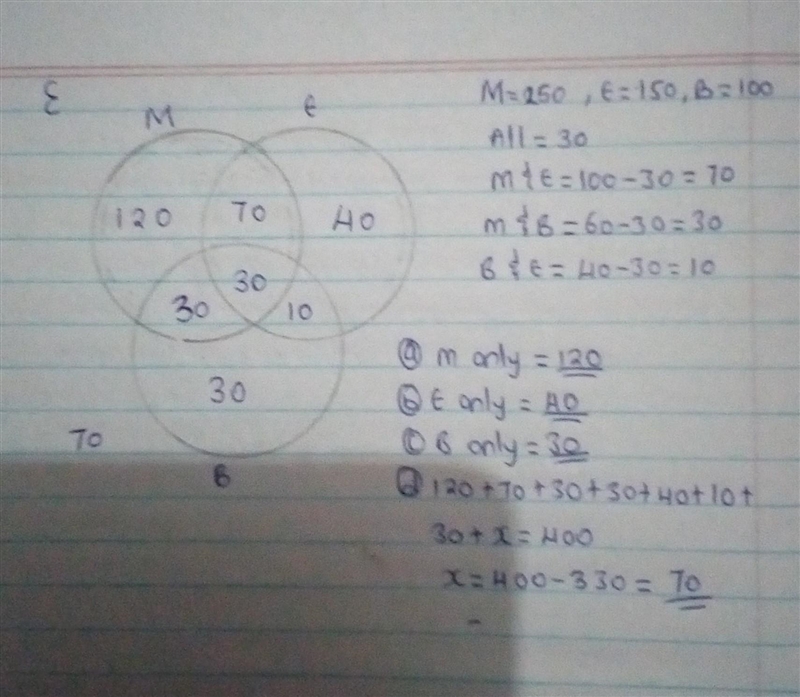 Ɛ
M E
120 70 40
30
30 10
30
70
B
M=250, E=150, B=100
All = 30
M & E = 100 - 30 = 70
M & B = 60 - 30 = 30
B & E = 40 - 30 = 10
(a) M only = 120
(b) E only = 40
(c) B only = 30
(d) 120+70+30+30+40+10+
30+x=400
x=400-330= 70